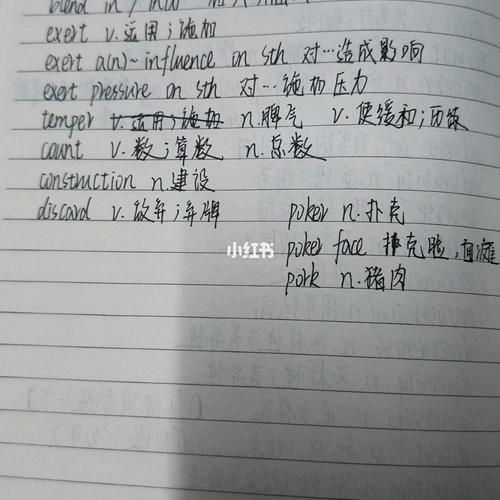 blend in / into
exert v. 运用；施加
exert a(n)~ influence on sth 对…造成影响
exert pressure on sth 对…施加压力
temper v.运用；施加 n.脾气 v.使缓和；历练
count v.数；算数 n.总数
construction n.建设
discard v.放弃；弃牌 poker n.扑克
小红书
poker face 扑克脸，面瘫
pork n.猪肉